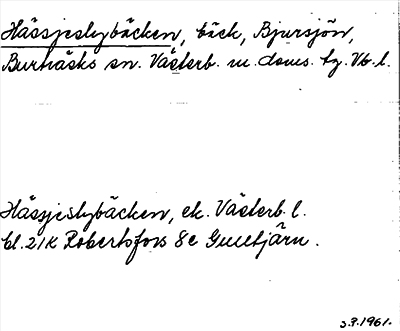 Hässjeslybäcken, bäck, Bjursjön,
Burträsks sn. Västerb. m. doms. tg. Vb. l.
Hässjeslybäcken, ek. Västerb. l.
bl. 21K Robertsfors 8e Gulltjärn.
3.9.1961.